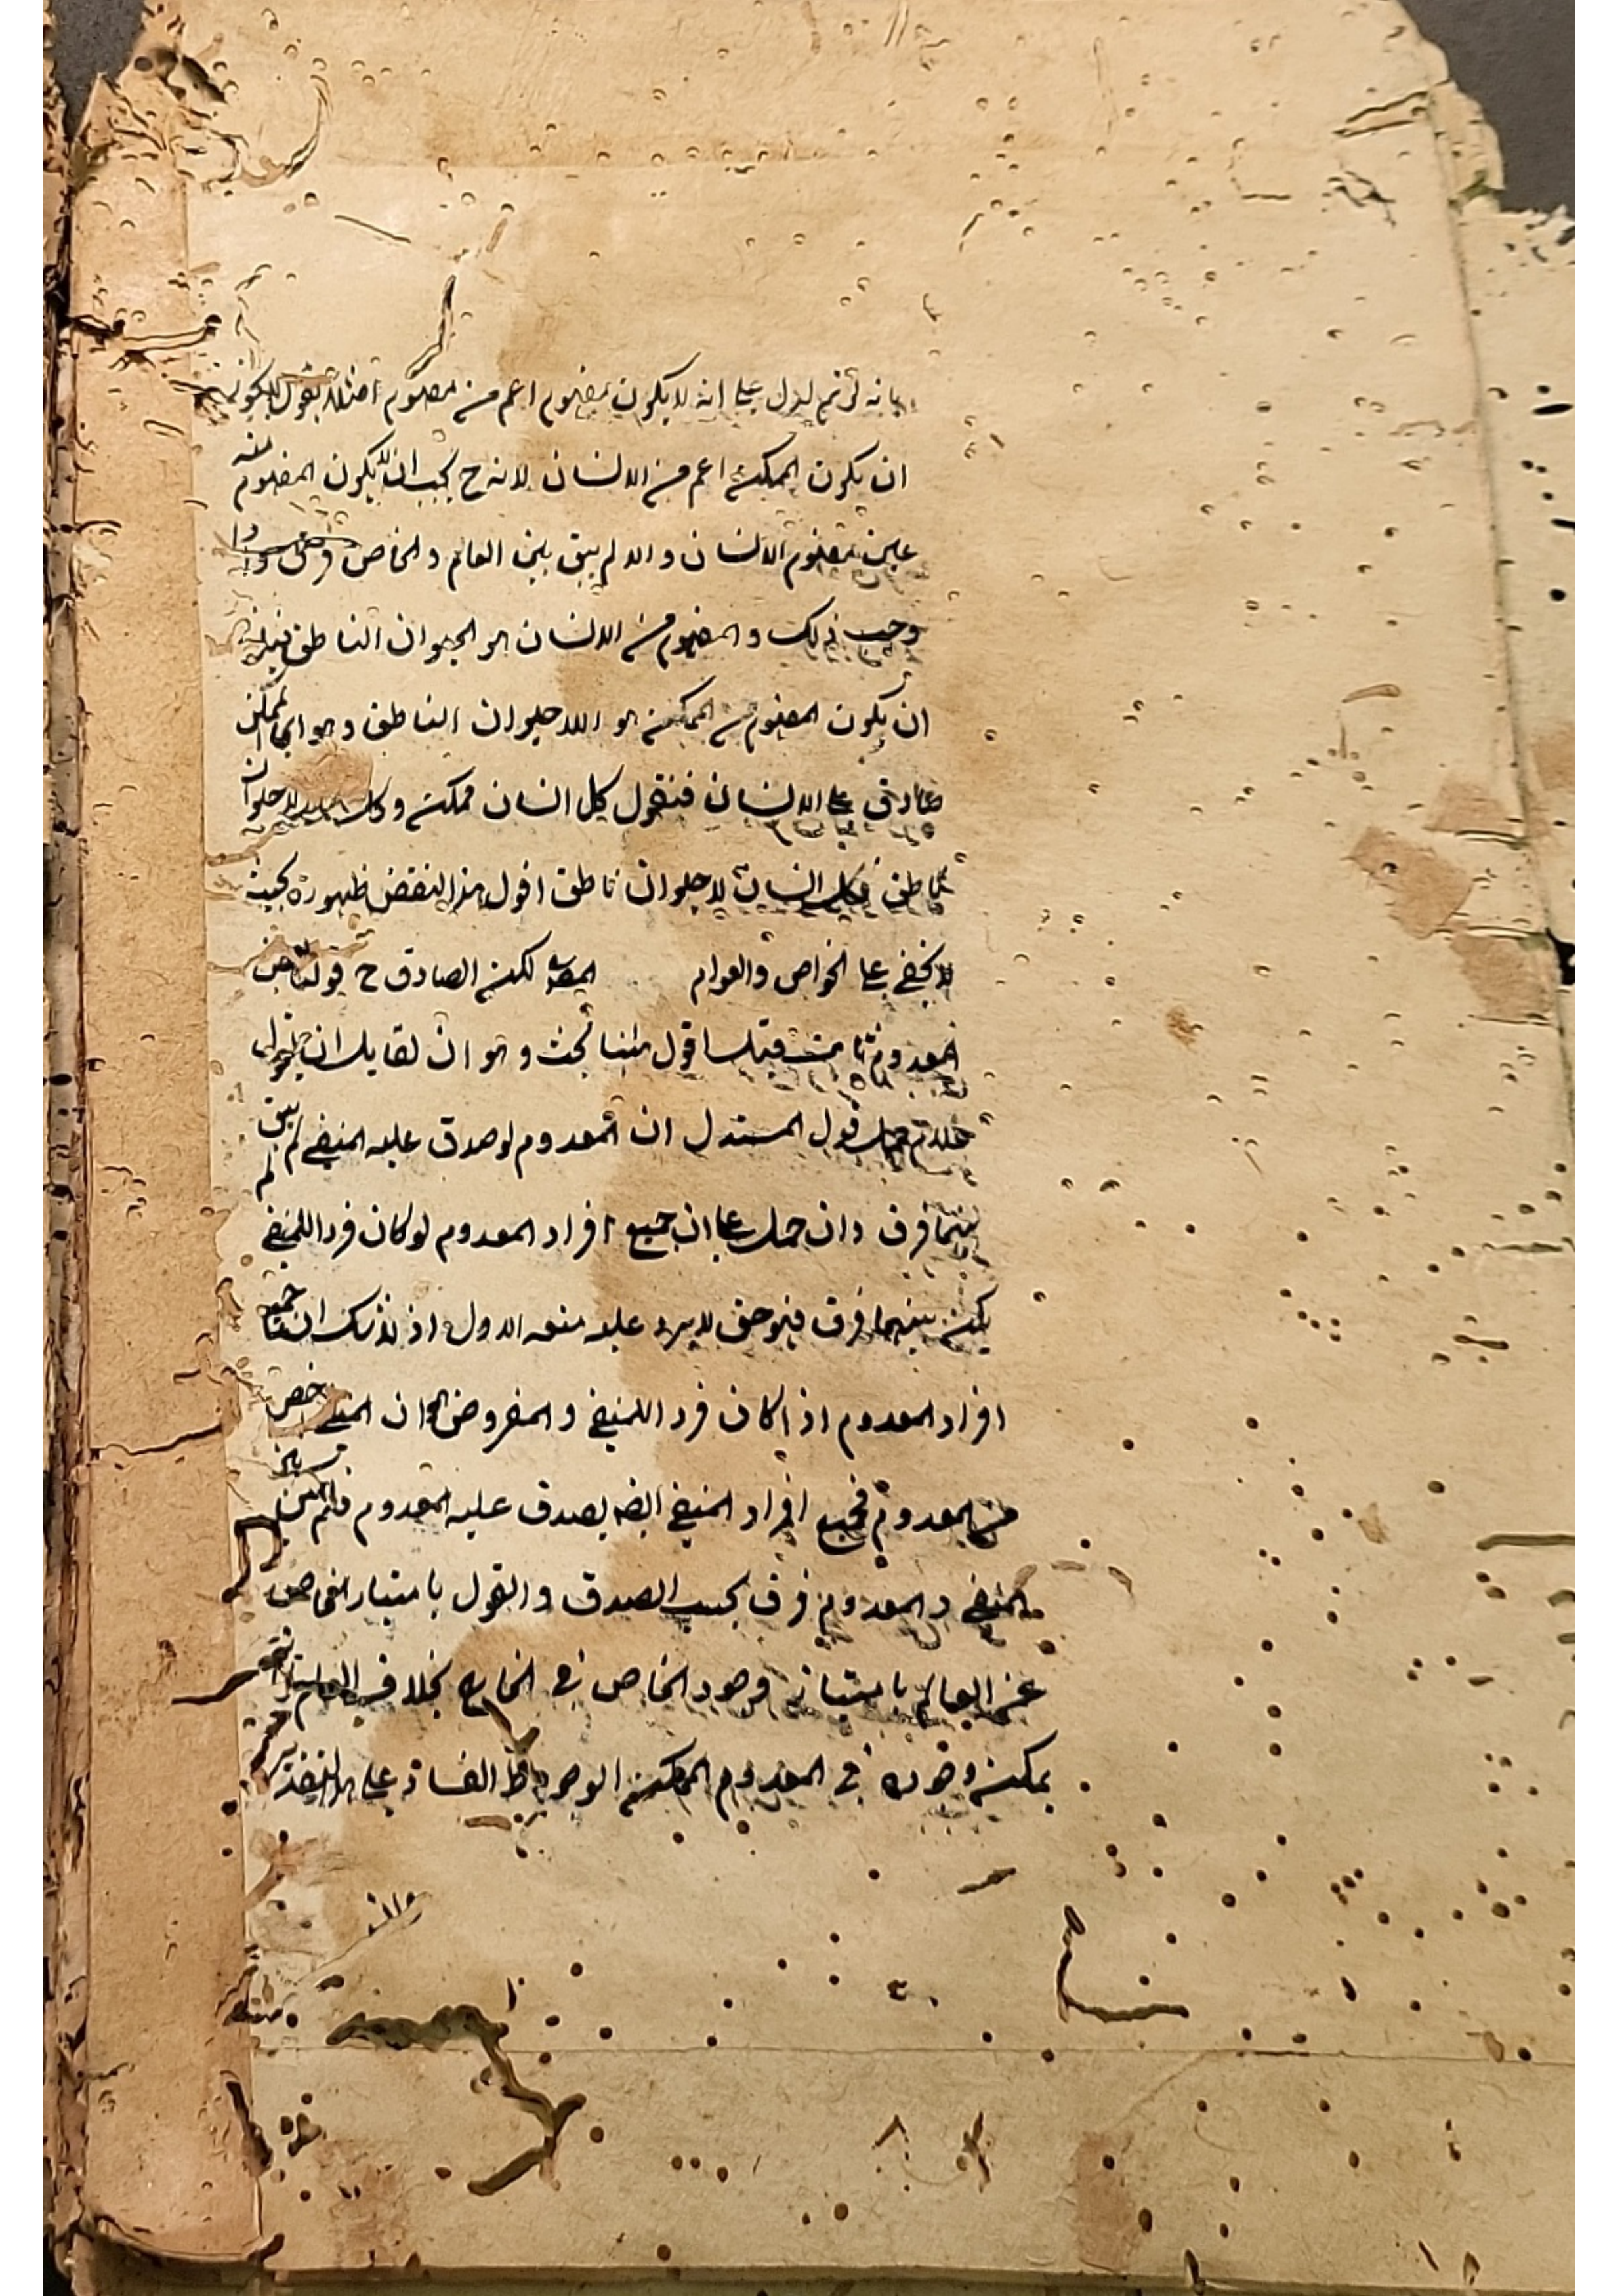 بانه لو تم لدل على انه لا يكون مفهوم اعم من مفهوم اصلا بقول لا يكون
ان يكون الممكن اعم من الانسان لانه ح يجب ان لا يكون المفهوم منه
عين مفهوم الانسان و الا لم يبق بين العام و الخاص فرق و اذا
وجب ذلك و المفهوم من الانسان هو الحيوان الناطق فيلزم
ان يكون المفهوم من الممكن هو اللاحيوان الناطق و هو اى الممكن
صادق على الانسان فنقول كل انسان ممكن و كل لا حيوان
ناطق فكل انسان لا حيوان ناطق اقول هذا النقض ظهوره بحيث
لا يخفى على الخواص و العوام المص لكن الصادق ح قولنا بعض
المعدوم ثابت اقول هنا بحث و هو ان لقايل ان يقول
حمل قول المستدل ان المعدوم لو صدق عليه المنفى لم يبق
بينهما فرق و ان حمل على ان جميع افراد المعدوم لو كان فردا للمنفى لم
يكن بينهما فرق فهو حق لا يرد عليه منعه الاول اذ لا شك ان جميع
افراد المعدوم اذا كان فردا للمنفى و المفروض ان المنفى اخص
من المعدوم فجميع افراد المنفى ايضا يصدق عليه المعدوم فلم يكن بين
المنفى و المعدوم فرق بحسب الصدق و القول بامتياز الخاص
عن العام بامتياز وجود الخاص فى الخارج بخلاف العام
يمكن وجوده فى المعدوم الممكن الوجود ظ الفساد على هذا التقدير